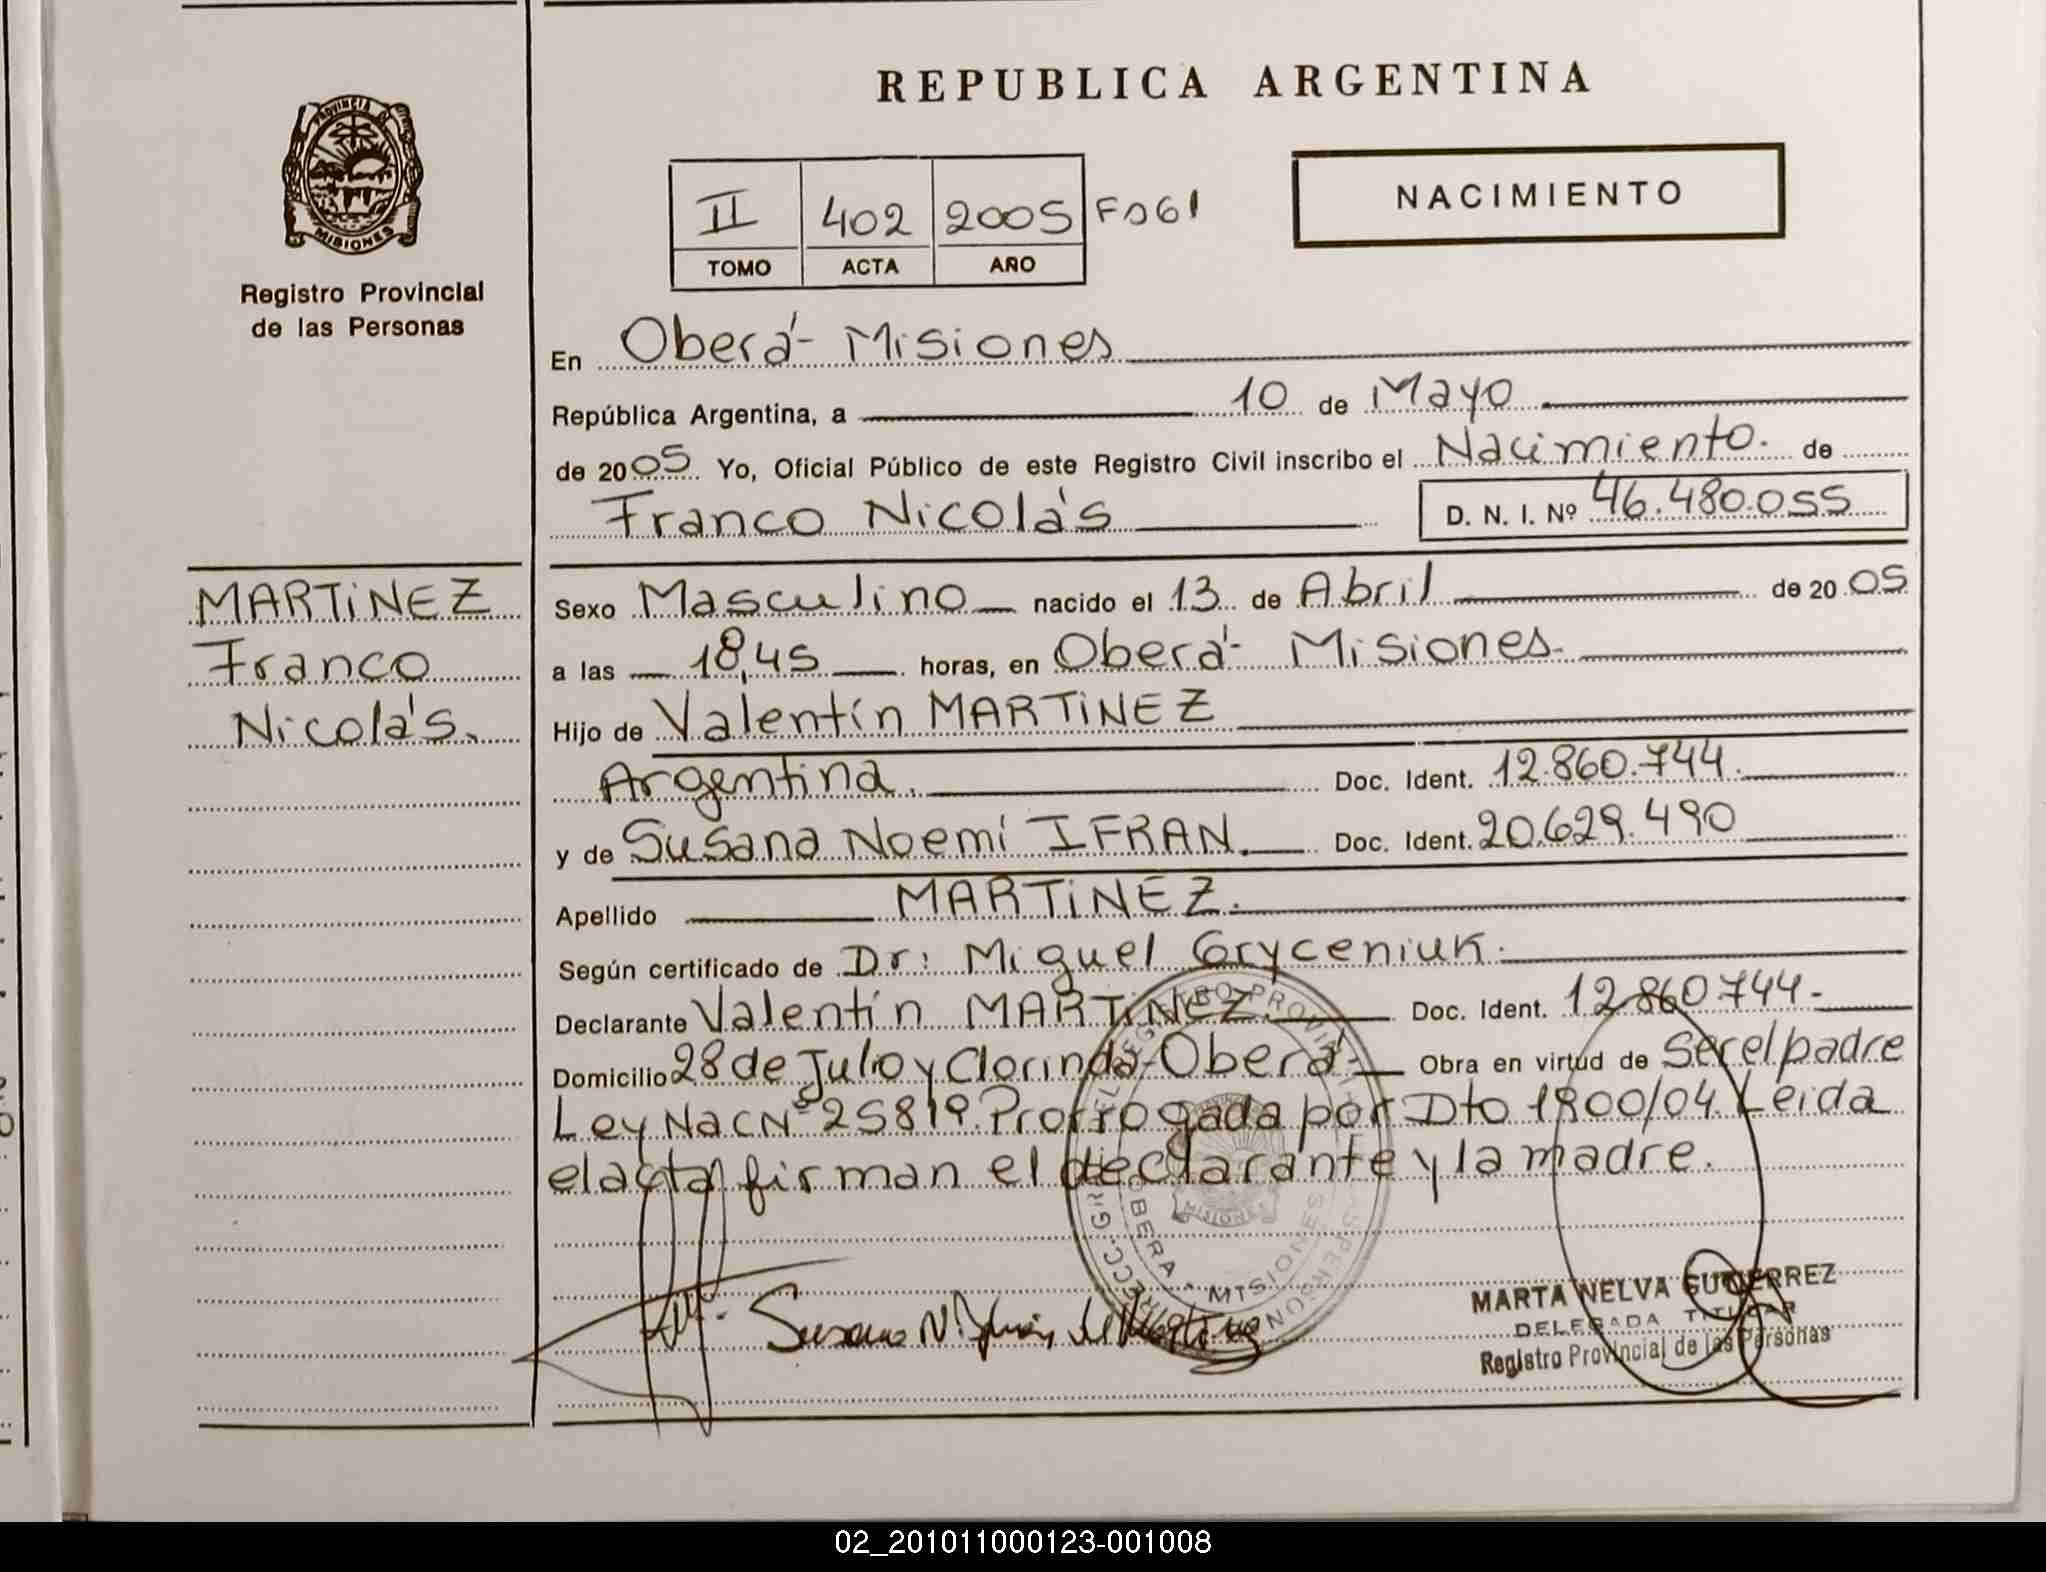 REPUBLICA ARGENTINA
PROVINCIA DE
MISIONES
Registro Provincial
de las Personas
II 402 2005 Fº61
TOMO ACTA AÑO
NACIMIENTO
En Oberá - Misiones
República Argentina, a 10 de Mayo
de 2005 Yo, Oficial Público de este Registro Civil inscribo el Nacimiento. de
Franco Nicolás D. N. I. Nº 46.480.055
MARTiNEZ
Franco
Nicolás.
Sexo Masculino nacido el 13 de Abril de 2005
a las 18,45 horas, en Oberá - Misiones.
Hijo de Valentín MARTiNEZ
Argentina. Doc. Ident. 12.860.744.
y de Susana Noemí IFRAN. Doc. Ident. 20.629.490
Apellido MARTiNEZ.
Según certificado de Dr: Miguel Gryceniuk.
Declarante Valentín MARTiNEZ. Doc. Ident. 12.860.744.-
Domicilio 28 de Julio y Clorinda - Oberá Obra en virtud de Ser el padre
Ley Nac Nº 25819. Prorrogada por Dto 1900/04. Leida
el acta firman el declarante y la madre.
OBERA * MISIONES
Susana N. Ifrán de Martinez
MARTA NELVA GUTIERREZ
DELEGADA TITULAR
Registro Provincial de las Personas
02_201011000123-001008